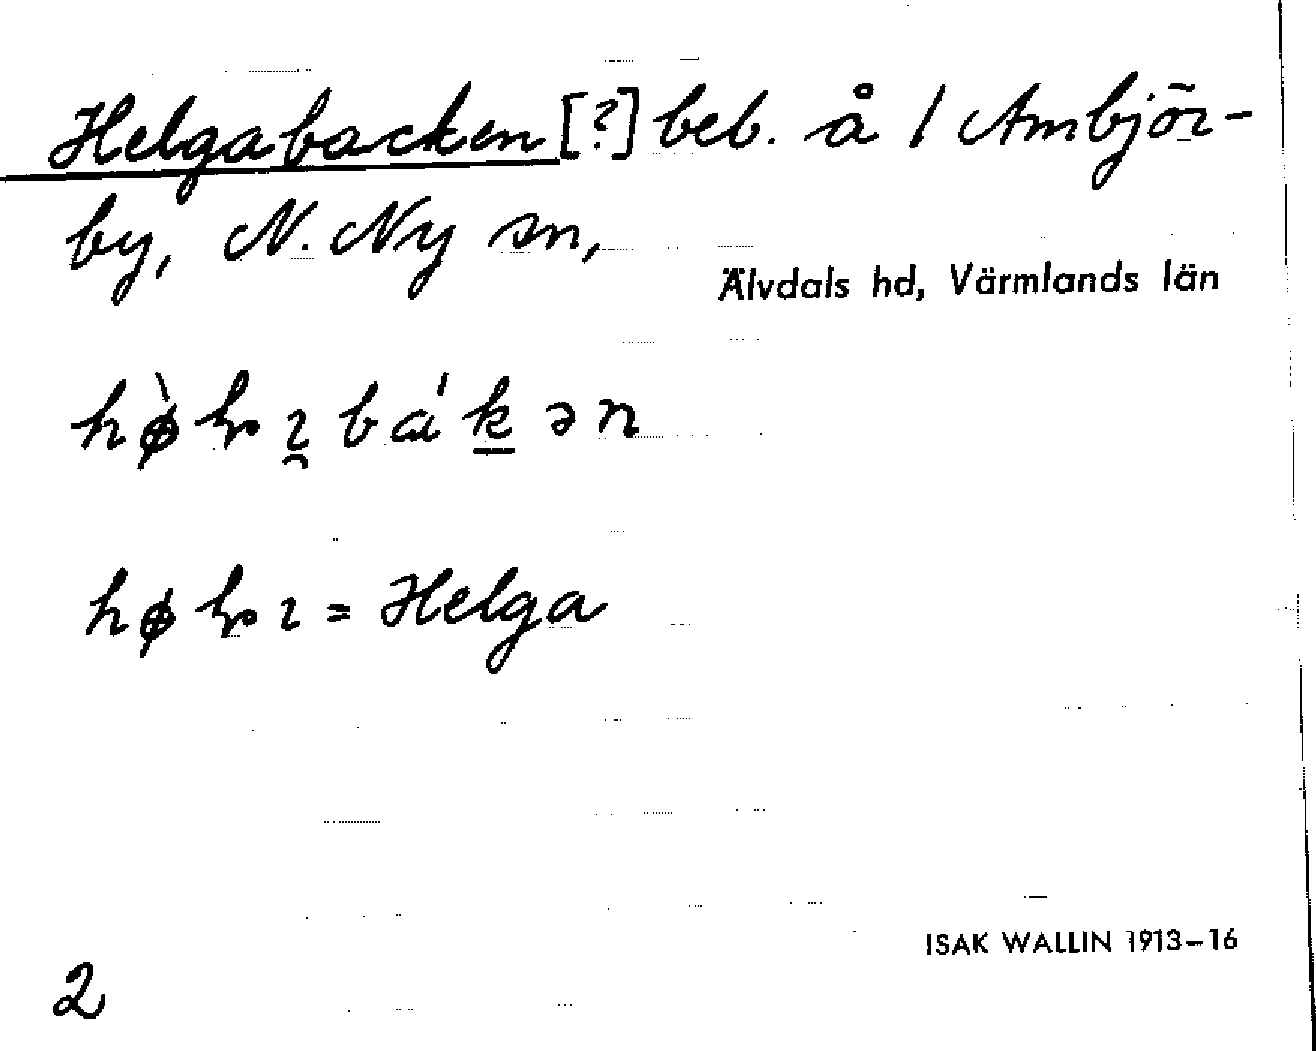 Helgabacken [?] beb. å / Ambjör-
by, N. Ny sn,
Älvdals hd, Värmlands län
= Helga
ISAK WALLIN 1913–16
2